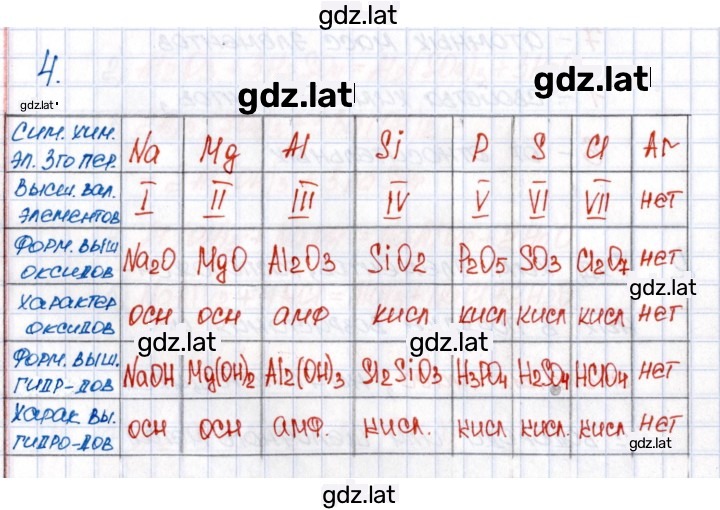 gdz.lat
4.
gdz.lat
gdz.lat
gdz.lat
Сим. хим. эл. 3го пер. Na Mg Al Si P S Cl Ar
Высш. вал. элементов I II III IV V VI VII нет
Форм. выш оксидов Na2O MgO Al2O3 SiO2 P2O5 SO3 Cl2O7 нет
gdz.lat
Характер оксидов осн осн амф кисл кисл кисл кисл нет
gdz.lat
gdz.lat
Форм. выш. гидр-дов NaOH Mg(OH)2 Al2(OH)3 Si2SiO3 H3PO4 H2SO4 HClO4 нет
Харак вы. гидро-дов осн осн амф. кисл. кисл кисл кисл нет
gdz.lat
gdz.lat